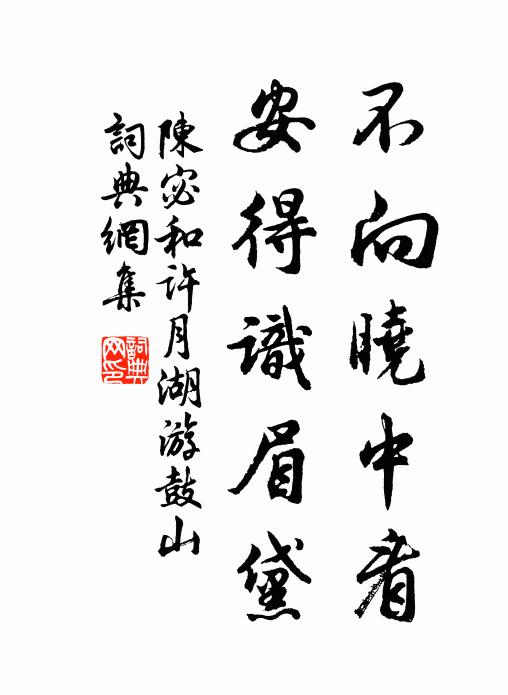 不向曉中看
安得識眉黛
陳宓和許月湖游鼓山
詞典網集
詞典
网印